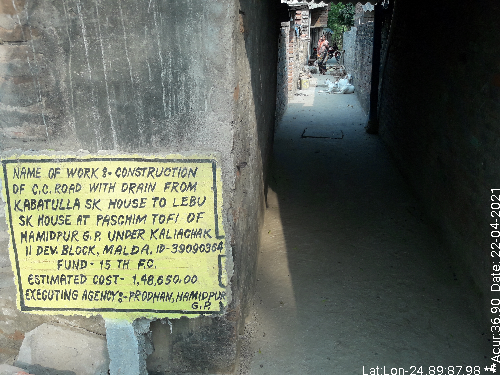 NAME OF WORK :- CONSTRUCTION
OF C.C. ROAD WITH DRAIN FROM
KABATULLA SK HOUSE TO LEBU
SK HOUSE AT PASCHIM TOFI OF
HAMIDPUR G.P. UNDER KALIACHAK
II DEV. BLOCK, MALDA. ID-39090364
FUND - 15 TH F.C.
ESTIMATED COST - 1,48,650.00
EXECUTING AGENCY :- PRODHAN, HAMIDPUR
G.P.
Lat:Lon-24.89:87.98 **
**Acur:36.90 Date: 22-04-2021